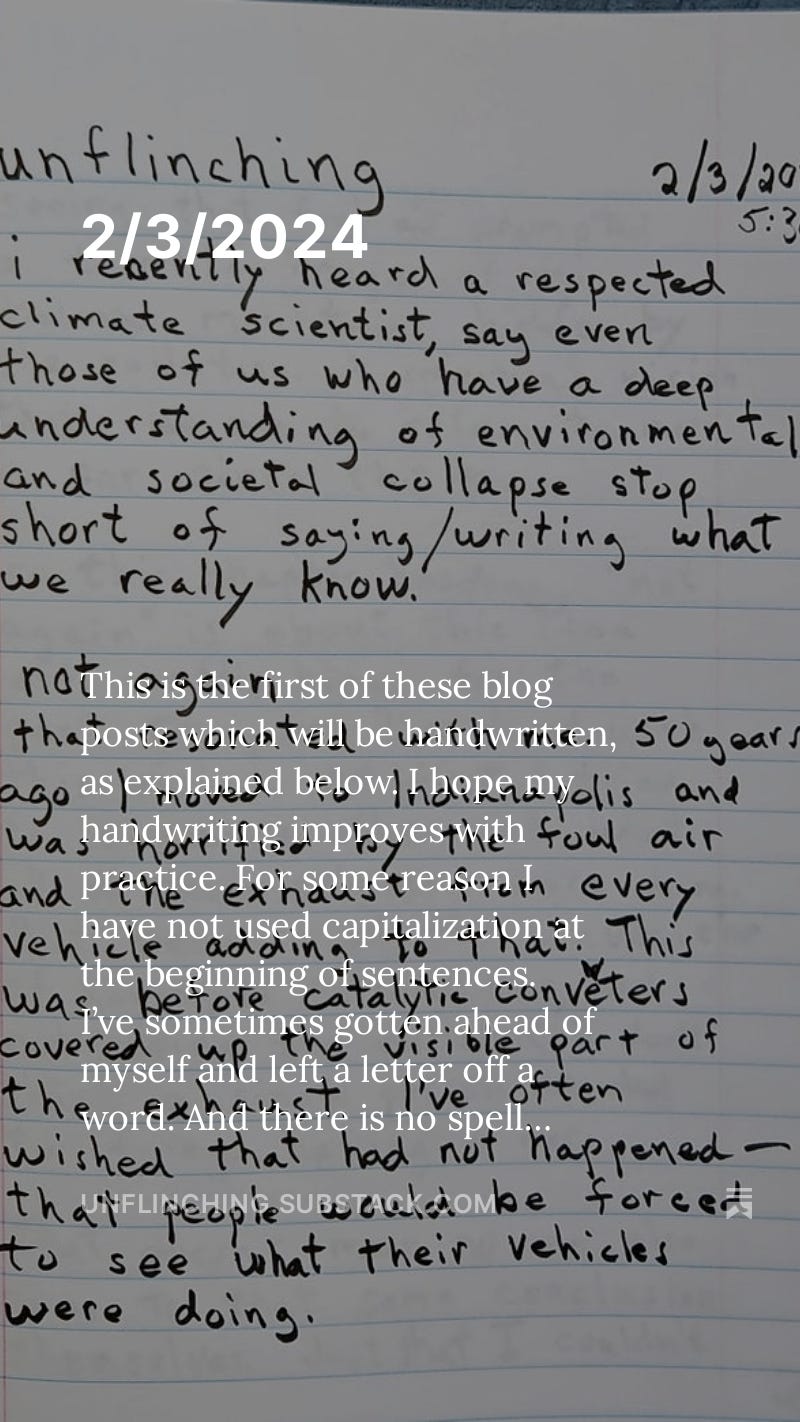 unflinching
2/3/20
5:3
2/3/2024
i recently heard a respected
climate scientist, say even
those of us who have a deep
understanding of environmental
and societal collapse stop
short of saying/writing what
we really know.
not again
that resonated with me. 50 years
ago I moved to Indianapolis and
was horrified by the foul air
and the exhaust from every
vehicle adding to that. This
was before catalytic conveters
covered up the visible part of
the exhaust I've often
wished that had not happened—
that people would be forced
to see what their vehicles
were doing.
This is the first of these blog
posts which will be handwritten,
as explained below. I hope my
handwriting improves with
practice. For some reason I
have not used capitalization at
the beginning of sentences.
I've sometimes gotten ahead of
myself and left a letter off a
word. And there is no spell...
UNFLINCHING.SUBSTACK.COM